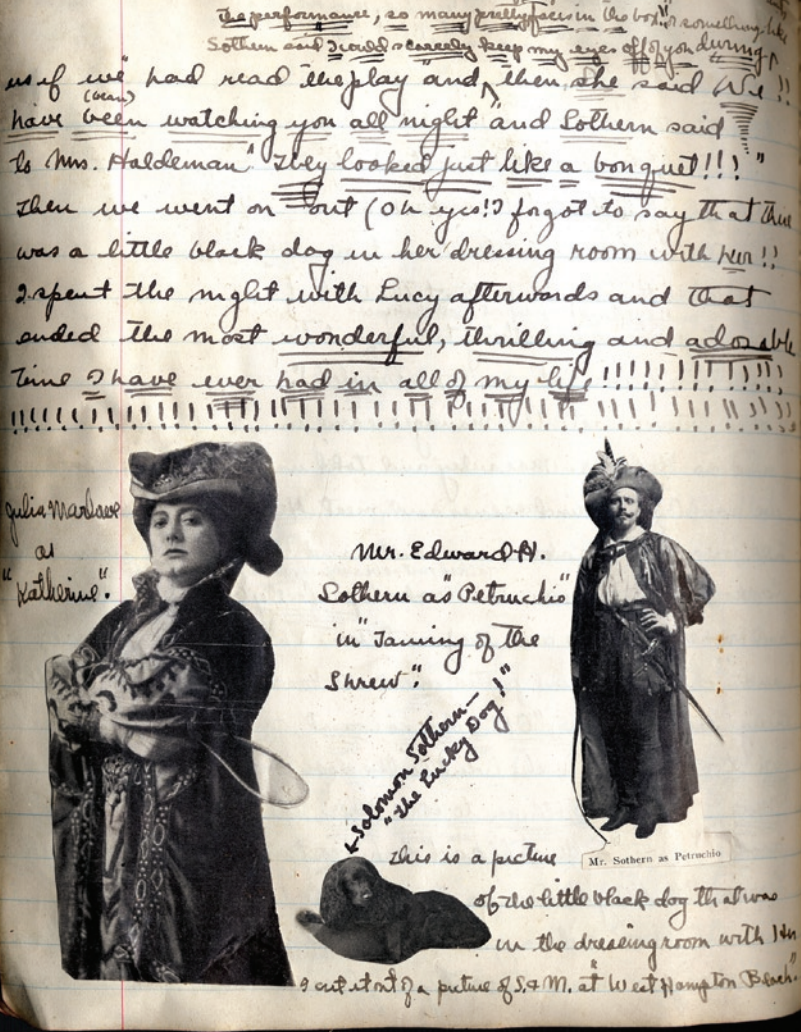 the performance, so many pretty faces in the box" or something like
Sothern said I could scarcely keep my eyes off of you during
us if we" had read the play "and then she said We!!
(been)
have been watching you all night" and Sothern said
to Mrs. Haldeman "They looked just like a bouquet!!!"
Then we went on out (Oh yes! I forgot to say that there
was a little black dog in her dressing room with her!!
I spent the night with Lucy afterwards and that
ended the most wonderful, thrilling and adorable
time I have ever had in all of my life!!!!!!!!!!!
!!!!!!!!!!!!!!!!!!!!!!!!!!!!!!!!!!!!!!
Julia Marlowe
as
"Katherine".
Mr. Edward H.
Sothern as "Petruchio"
in "Taming of the
Shrew".
Solomon Sothern—
"The Lucky Dog!"
Mr. Sothern as Petruchio
This is a picture
of the little black dog that was
in the dressing room with Her
I cut it out of a picture of S. & M. at "West Hampton Beach."